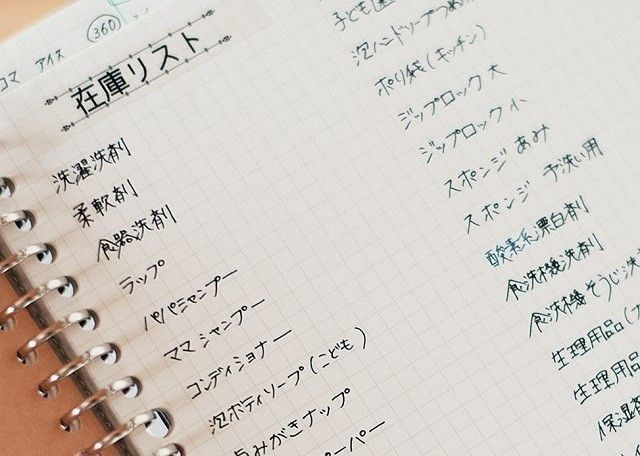 コマ アイス 360
在庫リスト
洗濯洗剤
柔軟剤
食器洗剤
ラップ
パパシャンプー
ママシャンプー
コンディショナー
泡ボディソープ(こども)
みがきナップ
ペーパー
子ども
泡ハンドソープつめ
ポリ袋(キッチン)
ジップロック 大
ジップロック 小
スポンジ あみ
スポンジ 手洗い用
酸素系漂白剤
食洗機洗剤
食洗機そうじ洗
生理用品(
生理用品
保湿